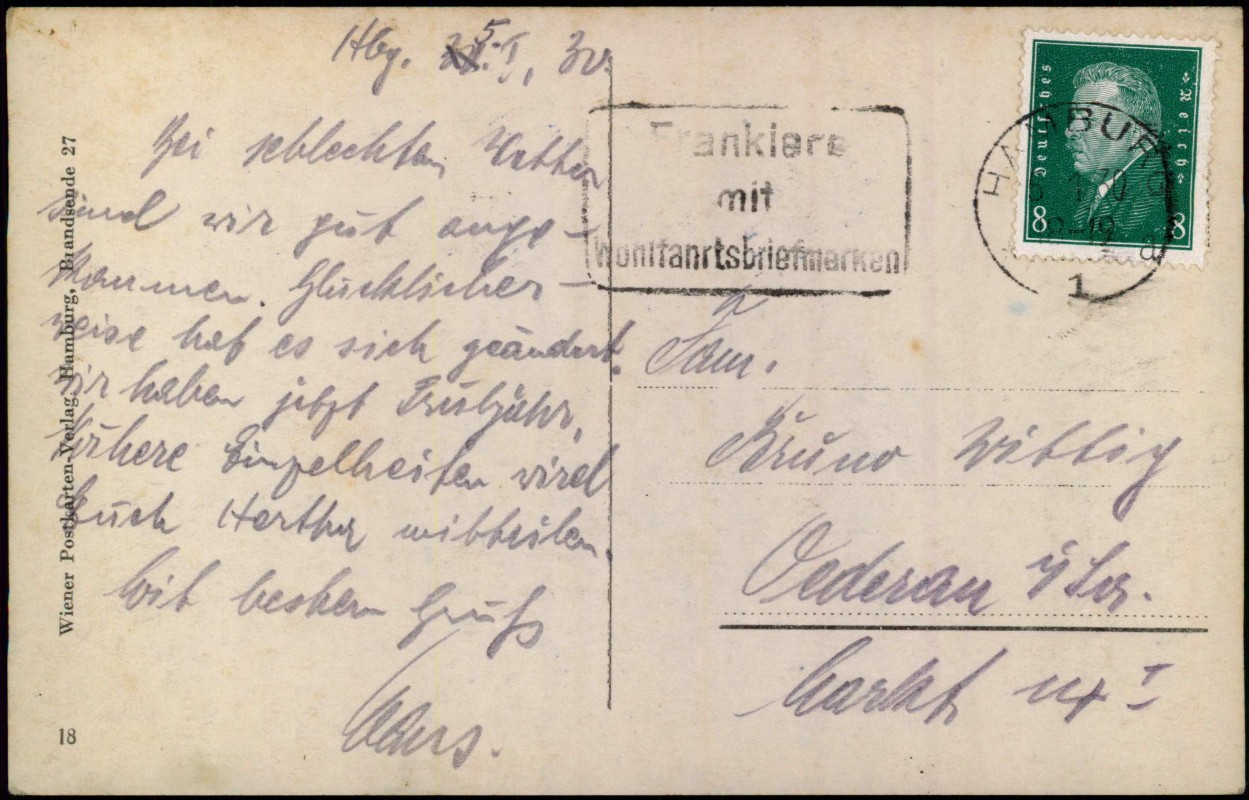 Hbg. 5.I. 30.
Bei schlechten Wetter
sind wir gut ange-
kommen. Glücklicher-
weise hat es sich geändert.
Wir haben jetzt Frühjahr,
Nähere Einzelheiten wird
Euch Herther mitteilen.
Mit bestem Gruß
Wiener Postkarten-Verlag, Hamburg, Brandsende 27
18
Frankiere
mit
Wohlfahrtsbriefmarken
Deutsches Reich
8 8
HAMBURG
1
Fam.
Bruno Wittig
Oederan i/Sa.
Markt